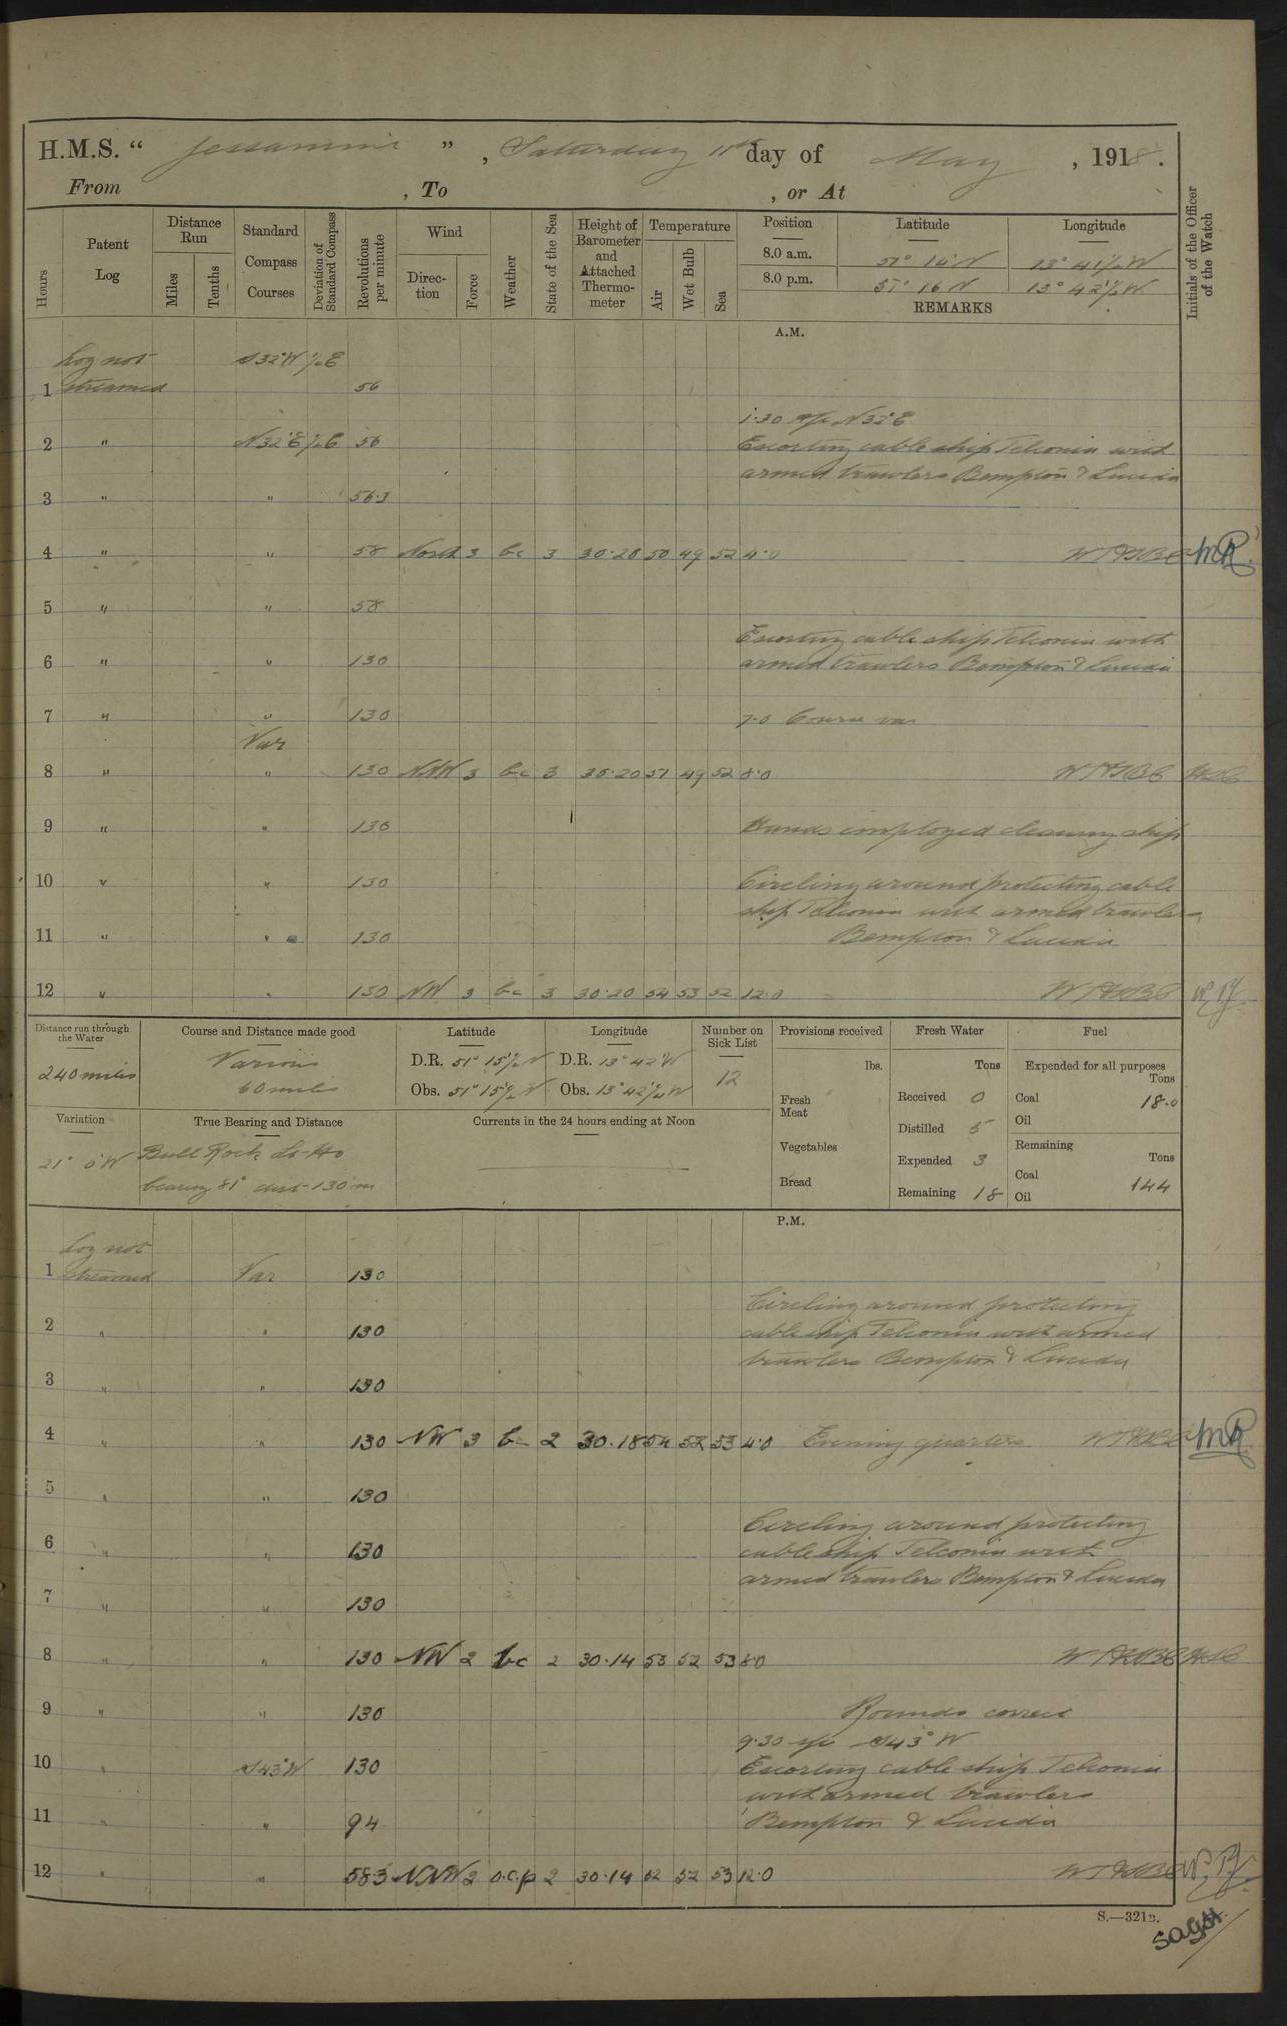 H.M.S. " Jessamine ", Saturday 11th day of May, 1918.
From , To , or At
Hours
Patent Log
Distance Run
Miles
Tenths
Standard Compass Courses
Deviation of Standard Compass
Revolutions per minute
Wind
Direction
Force
Weather
State of the Sea
Height of Barometer and Attached Thermometer
Temperature
Air
Wet Bulb
Sea
Position Latitude Longitude
8.0 a.m. 51° 14' N 13° 41½ W
8.0 p.m. 51° 16 N 13° 42½ W
REMARKS
Initials of the Officer of the Watch
A.M.
Log not S32°W ½E
1 streamed 56
1.30 a/c N32°E
2 " N32°E ½E 56 Escorting cable ship Telconia with
armed trawlers Bempton & Lucida
3 " " 56.3
4 " " 58 North 3 bc 3 30.20 50 49 52 4.0 MR.
5 " " 58
Escorting cable ship Telconia with
6 " " 130 armed trawlers Bempton & Lucida
7 " " 130 7.0 Course var
Var
8 " " 130 NNW 3 bc 3 30.20 51 49 52 8.0
9 " " 130 Hands employed cleaning ship
10 " " 130 Circling around protecting cable
ship Telconia with armed trawlers
11 " " 130 Bempton & Lucida
12 " " 130 NW 3 bc 3 30.20 54 53 52 12.0
Distance run through the Water
240 miles
Course and Distance made good
Various
60 miles
Latitude
D.R. 51° 15½ N
Obs. 51° 15½ N
Longitude
D.R. 13° 42' W
Obs. 13° 42½ W
Number on Sick List
12
Provisions received
lbs.
Fresh Meat
Vegetables
Bread
Fresh Water
Tons
Received 0
Distilled 5
Expended 3
Remaining 18
Fuel
Expended for all purposes
Tons
Coal 18.0
Oil
Remaining
Tons
Coal 144
Oil
Variation
21° 0' W
True Bearing and Distance
Bull Rock Lt Ho
bearing 81° dist 130 m
Currents in the 24 hours ending at Noon
P.M.
Log not
1 streamed Var 130
Circling around protecting
2 " " 130 cable ship Telconia with armed
trawlers Bempton & Lucida
3 " " 130
4 " " 130 NW 3 bc 2 30.18 54 52 53 4.0 Evening quarters MR
5 " " 130
Circling around protecting
6 " " 130 cable ship Telconia with
armed trawlers Bempton & Lucida
7 " " 130
8 " " 130 NW 2 bc 2 30.14 53 52 53 8.0
9 " " 130 Rounds correct
9.30 a/c S43°W
10 " S43°W 130 Escorting cable ship Telconia
with armed trawlers
11 " " 94 Bempton & Lucida
12 " " 58.3 NNW 2 o.c.p 2 30.14 52 52 53 12.0
S.—321B.